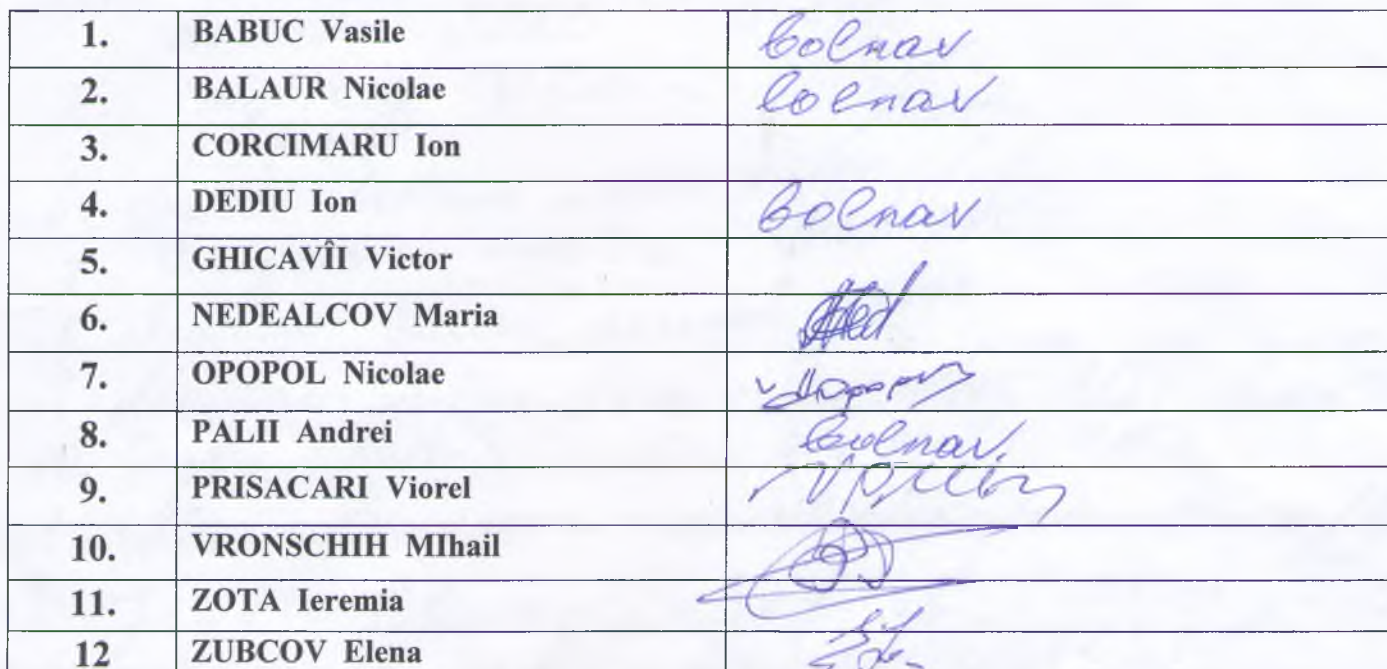 1. BABUC Vasile bolnav
2. BALAUR Nicolae bolnav
3. CORCIMARU Ion
4. DEDIU Ion bolnav
5. GHICAVÎI Victor
6. NEDEALCOV Maria
7. OPOPOL Nicolae
8. PALII Andrei bolnav.
9. PRISACARI Viorel
10. VRONSCHIH MIhail
11. ZOTA Ieremia
12 ZUBCOV Elena